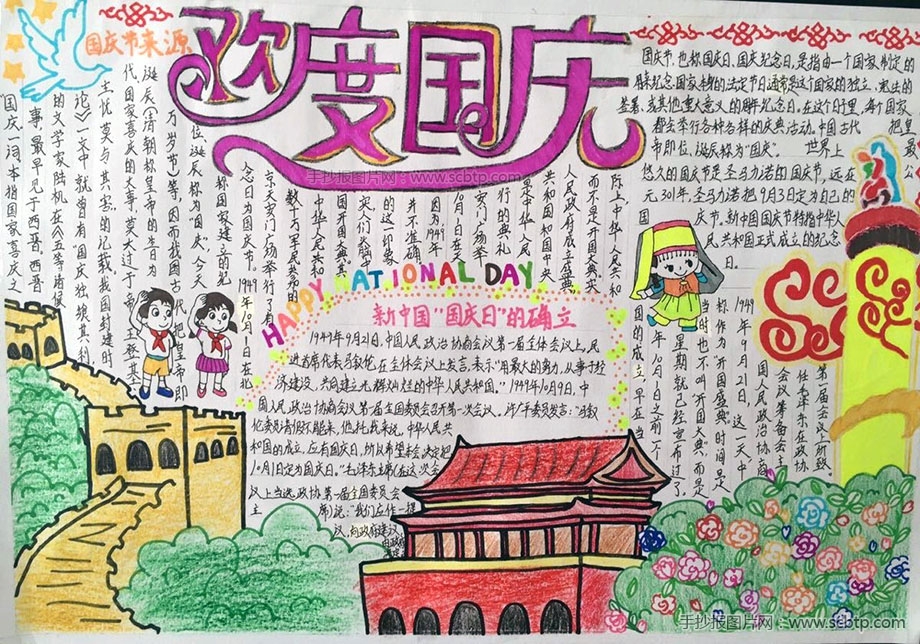 欢度国庆
国庆节来源
国庆一词,本指国家喜庆之
事,最早见于西晋。西晋
的文学家陆机在《五等诸侯
论》一文中就曾有“国庆独飨其利
主忧莫与其害”的记载、我国封建时
代、国家喜庆的大事,莫大过于帝王登基
诞辰(清朝称皇帝的生日为
万岁节)等,因而我国古代把皇帝即
位、诞辰称为“国庆”。今天
称国家建立的纪
念日为国庆节。1949年10月1日在北
京天安门广场举行了有
数十万军民参加的
中华人民共和
国开国大典。其
实人们头脑中
的这一印象
并不准确。
因为,1949年
10月1日在天
安门广场举
行的典礼
是中华人民
共和国中央
人民政府成立盛典
而不是开国大典。实
际上,中华人民共和
国的成立,早在当
年10月1日之前一个
星期就已经宣布过了
当时也不叫“开国大典”,而是
称作“开国盛典”。时间是
1949年9月21日。这一天,中
国人民政治协商
会议筹备会主
任毛泽东在政协
第一届会议上所致
国庆节,也称国庆日、国庆纪念日,是指由一个国家制定的
用来纪念国家本身的法定节日,通常是这个国家的独立、宪法的
签署、或其他重大意义的周年纪念日。在这个日子里,每个国家
都会举行各种各样的庆典活动。中国古代把皇
帝即位、诞辰称为“国庆”。世界上最
悠久的国庆节是圣马力诺的国庆节,远在
元301年,圣马力诺把9月3日定为自己的
国庆节。新中国国庆节特指中华人
民共和国正式成立的纪念
日。
HAPPY NATIONAL DAY
新中国“国庆日”的确立
1949年9月21日,中国人民政治协商会议第一届全体会议上,民
进首席代表马叙伦在全体会议上发言,表示“用最大的努力,从事于经
济建设,共同建立光辉灿烂的中华人民共和国。”1949年10月9日,中
国人民政治协商会议第一届全国委员会召开第一次会议。许广平委员发言:“马叙
伦委员请假不能来,他托我来说,中华人民共
和国的成立,应有国庆日,所以希望本会决定把
10月1日定为国庆日。”毛泽东主席(在这次会
议上当选政协第一届全国委员会
主席)说:“我们应作一提
议,向政府建议
手抄报图片网:www.scbtp.com
手抄报图片网:www.scbtp.com